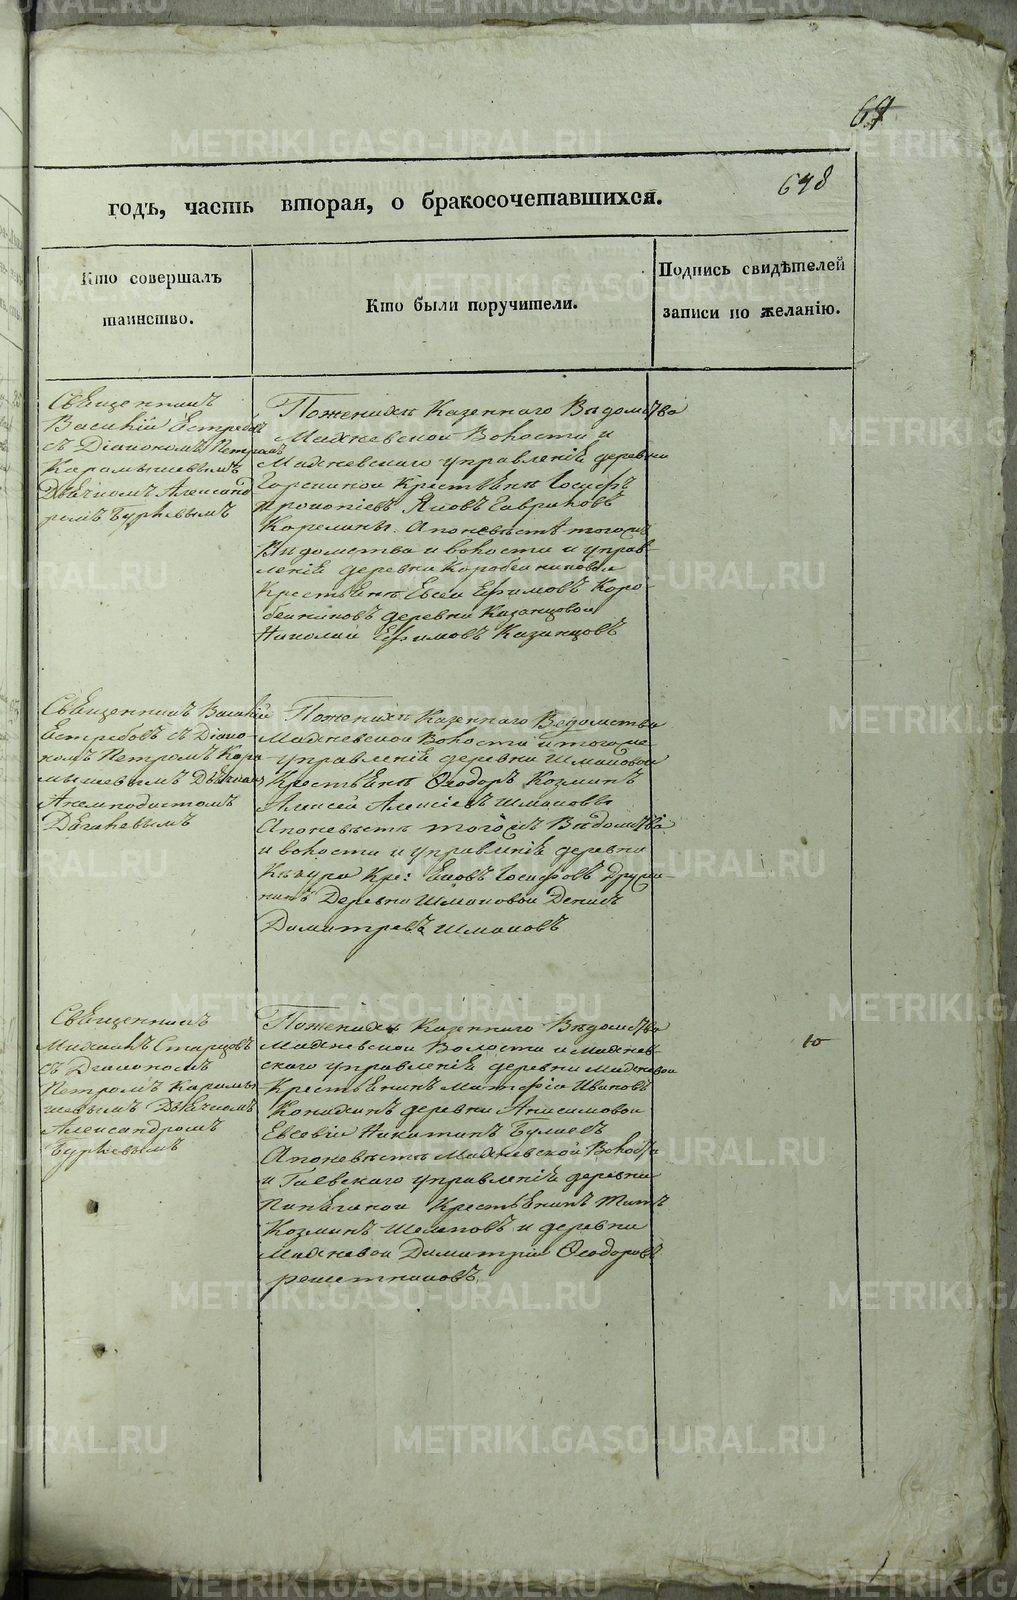 67
698
годъ, часть вторая, о бракосочетавшихся.
Кто совершалъ
таинство.
Кто были поручители.
Подпись свидѣтелей
записи по желанію.
Священникъ
Василій Ястребовъ
съ Діакономъ Петромъ
Карамышевымъ
Дьячкомъ Александ
ромъ
Поженихѣ Казеннаго Вѣдомства
Махневской Волости и
Махневскаго управленіе деревни
Горскиной Крестьяне Іосифъ
Прокопіевъ Яковъ Гавриловъ
Карелины. Апоневѣстѣ того жъ
Вѣдомства и волости и управ-
леніе деревни Коробейниковой
Крестьяне Евсей Ефимовъ Коро-
бейниковъ деревни Казанцовой
Николай Ефимовъ Казанцовъ
Священникъ Василій
Ястребовъ съ Діако-
номъ Петромъ Кара-
мышевымъ Дьячкомъ
Поженихѣ Казеннаго Ведомства
Махневской Волости и того же
управленіе деревни Шмаковой
Крестьяне Ѳеодоръ Козминъ
Алексей Алексіевъ Шмаковы
Апоневѣстѣ того жъ Вѣдомства
и волости и управленіе деревни
Кре: Яковъ Іосифовъ Дружи-
нинъ Деревни Шмаковой Денисъ
Димитревъ Шмаковъ
Священникъ
Михаилъ Старцовъ
съ Діакономъ
Петромъ Карамы
шевымъ Дьячкомъ
Александромъ
Поженихѣ Казеннаго Вѣдомства
Махневской Волости и Махнев-
скаго управленіе деревни Махневой
Крестьянинъ Матфіа Ивановъ
деревни Анисимовой
Евсевій Никитинъ
Апоневѣстѣ Махневской Волости
и Гаевскаго управленіе деревни
Крестьянинъ Титъ
Козминъ и деревни
Махневой Димитрій Ѳеодоровъ
решетниковъ
METRIKI.GASO-URAL.RU